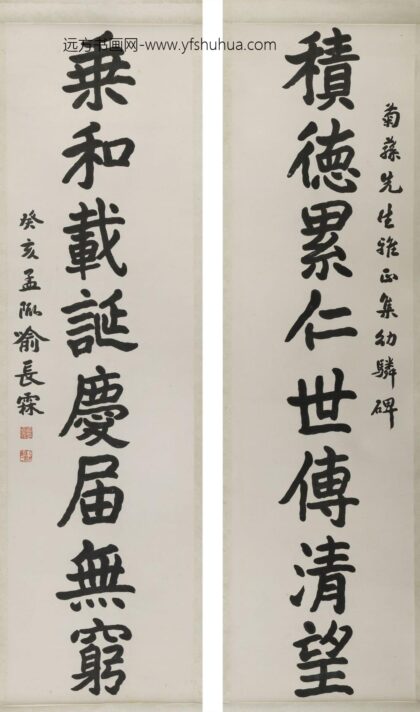 远方书画网-www.yfshuhua.com
菊蓀先生雅正集幼驎碑
積徳累仁世傳清望
乗和載誕慶届無窮
癸亥孟陬喻長霖